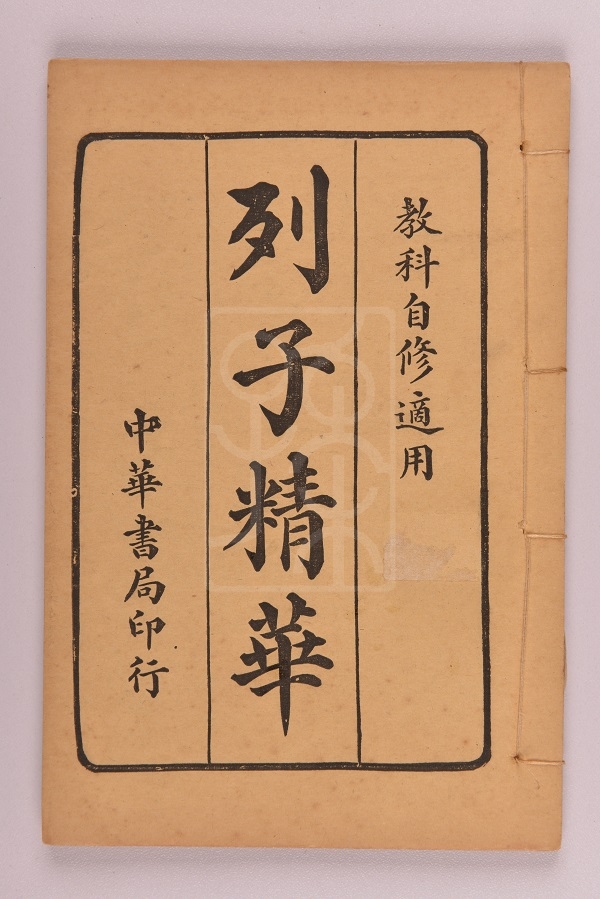 教科自修適用
列子精華
中華書局印行